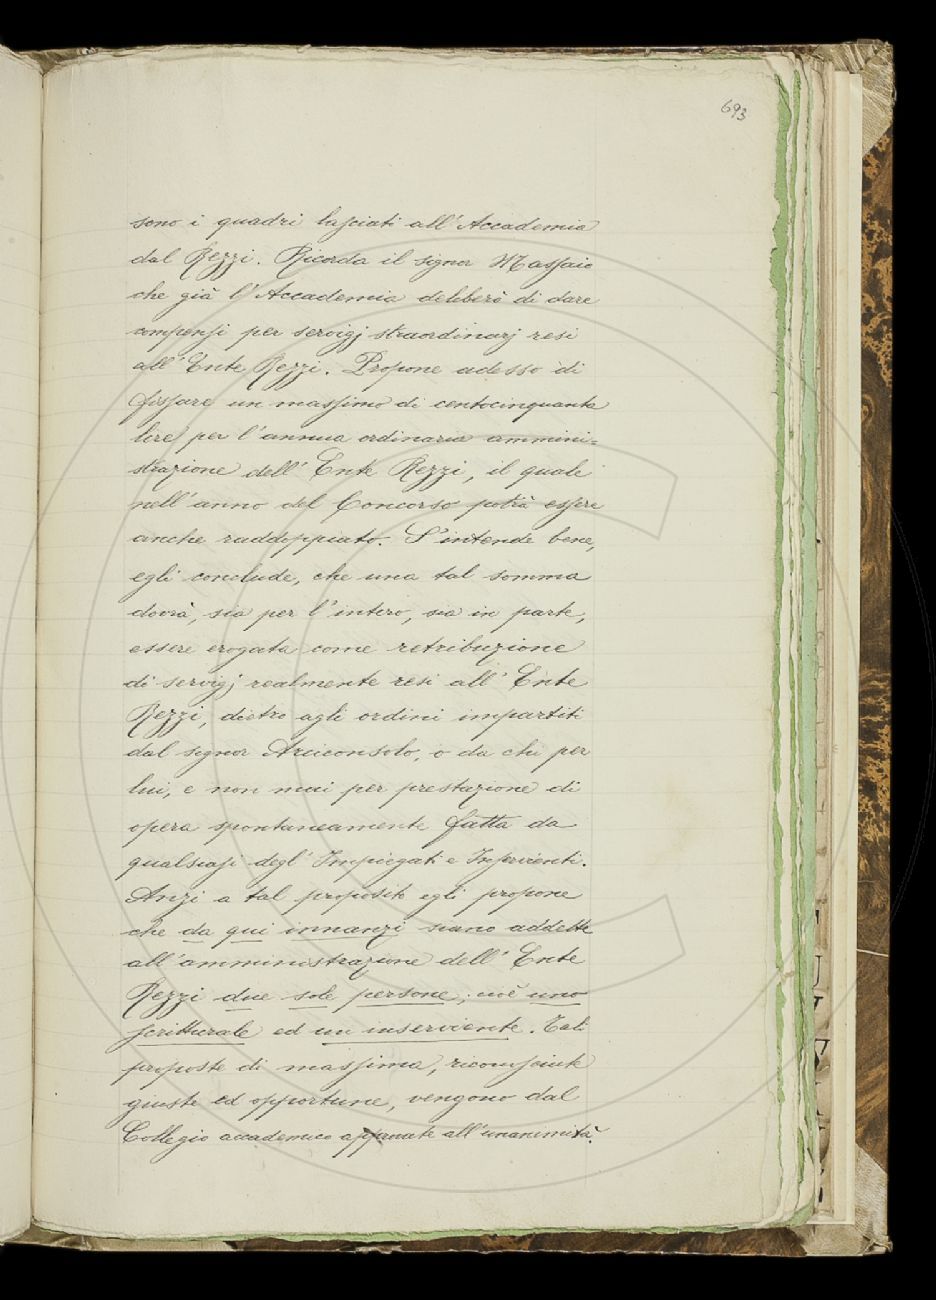 693
sono i quadri lasciati all'Accademia
dal Rezzi. Ricorda il signor Massaio
che già l'Accademia deliberò di dare
compensi per servigj straordinarj resi
all'Ente Rezzi. Propone adesso di
fissare un massimo di centocinquanta
lire per l'annua ordinaria ammini=
strazione dell'Ente Rezzi, il quale
nell'anno del Concorso potrà essere
anche raddoppiato. S'intende bene,
egli conclude, che una tal somma
dovrà, sia per l'intero, sia in parte,
essere erogata come retribuzione
di servigj realmente resi all'Ente
Rezzi, dietro agli ordini impartiti
dal signor Arciconsolo, o da chi per
lui, e non mai per prestazione di
opera spontaneamente fatta da
qualsiasi degl'Impiegati e Inservienti.
Anzi a tal proposito egli propone
che da qui innanzi siano addette
all'amministrazione dell'Ente
Rezzi due sole persone, cioè uno
scritturale ed un inserviente. Tali
proposte di massima, riconosciute
giuste ed opportune, vengono dal
Collegio accademico approvate all'unanimità.